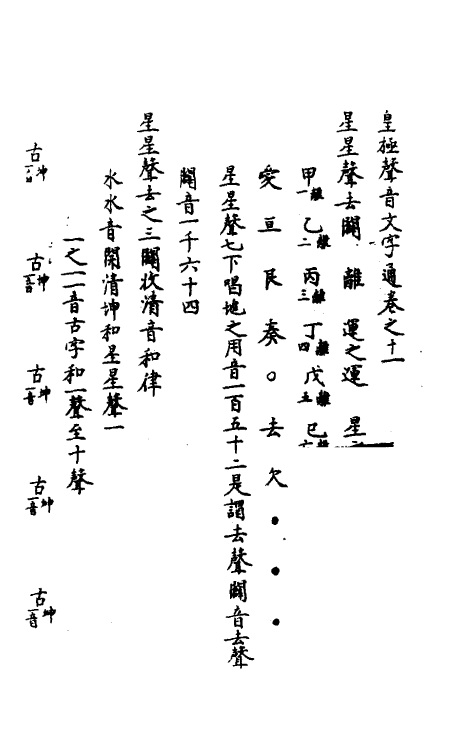 皇極聲音文字通卷之十一
星星聲去闢離 運之運 星
甲一離 乙二離 丙三離 丁四離 戊五離 己六離
愛亘艮奏○去欠●●●
星星聲七下唱地之用音一百五十二是謂去聲闢音去聲
闢音一千六十四
星星聲去之三闢收清音和律
水水音閉清坤和星星聲一
一之一一音古字和一聲至十聲
古坤一音 古坤一音 古坤一音 古坤一音 古坤一音